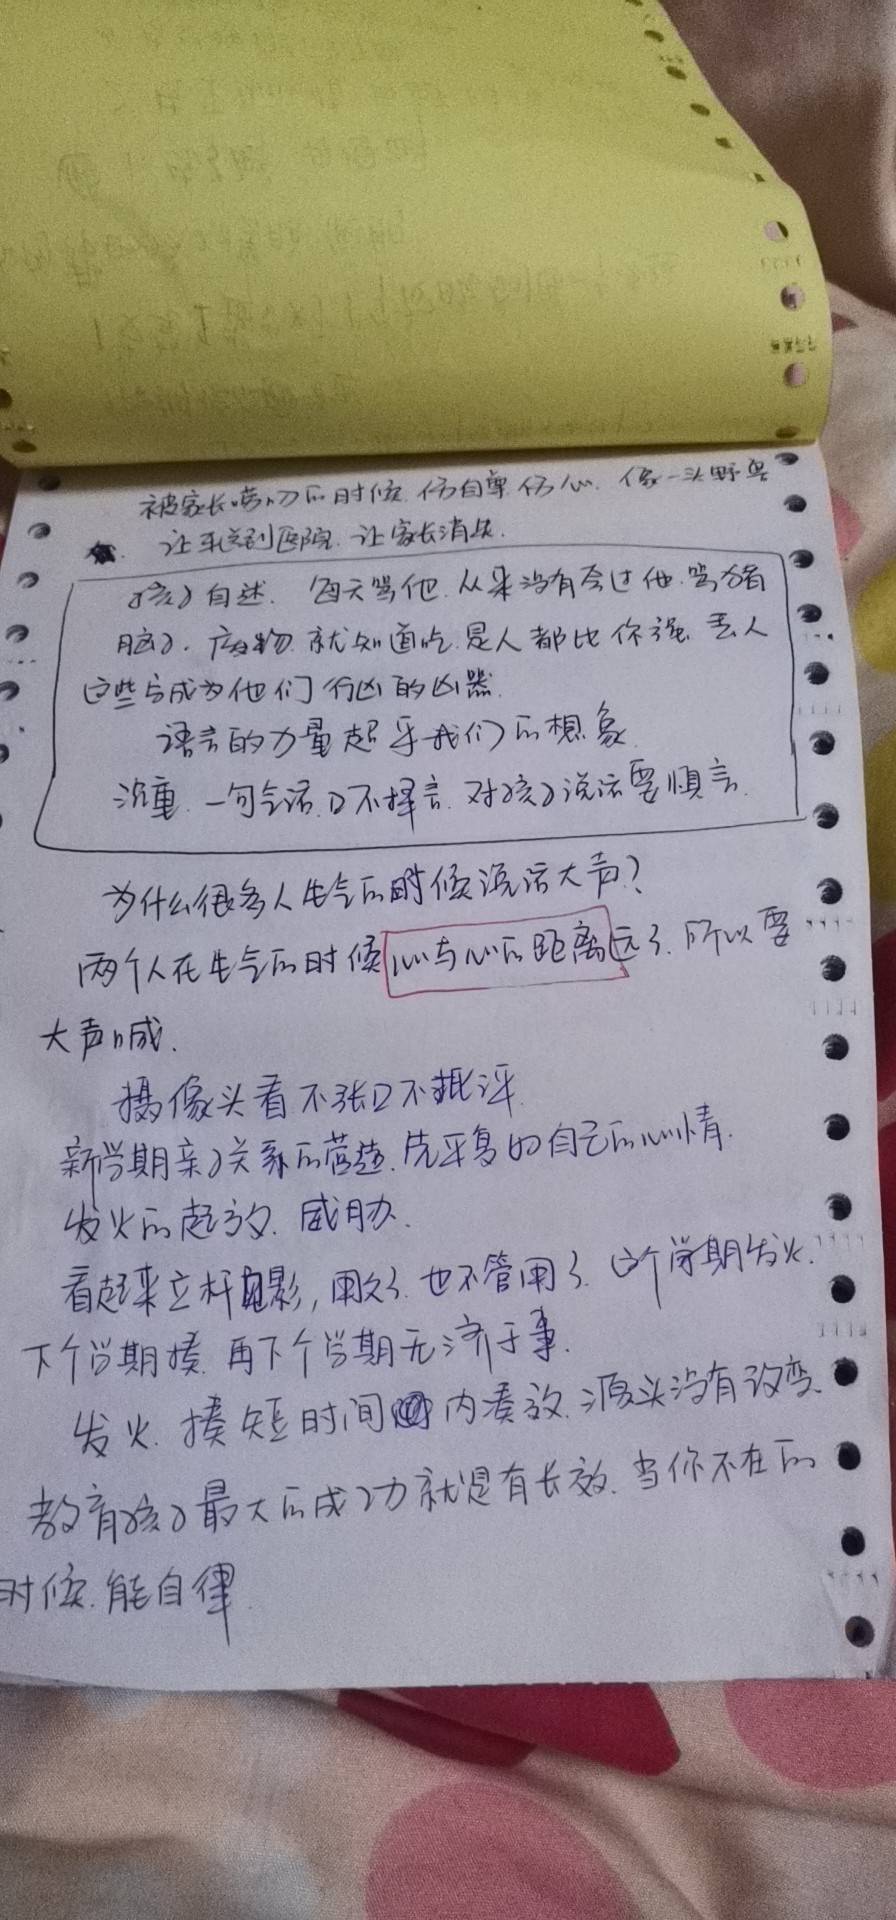 被家长唠叨的时候 伤自尊 伤心. 像一头野兽
让我到医院. 让家长消失.
孩子自述. 每天骂他. 从来没有夸过他. 骂猪
脑子. 废物. 就知道吃. 是人都比你强. 丢人
这些言成为他们行凶的凶器.
语言的力量超乎我们的想象
沉重. 一句气话. 口不择言. 对孩子说话要慎言.
为什么很多人生气的时候说话大声?
两个人在生气的时候心与心的距离远了. 所以要
大声喊.
摄像头看 不张口 不批评
新学期亲子关系的营造. 先平复的自己的心情.
发火的起效. 威胁.
看起来立杆见影, 用久了. 也不管用了. 这个学期发火.
下个学期揍. 再下个学期无济于事.
发火. 揍 短时间内凑效. 源头没有改变.
教育孩子最大的成功就是有长效. 当你不在的
时候. 能自律